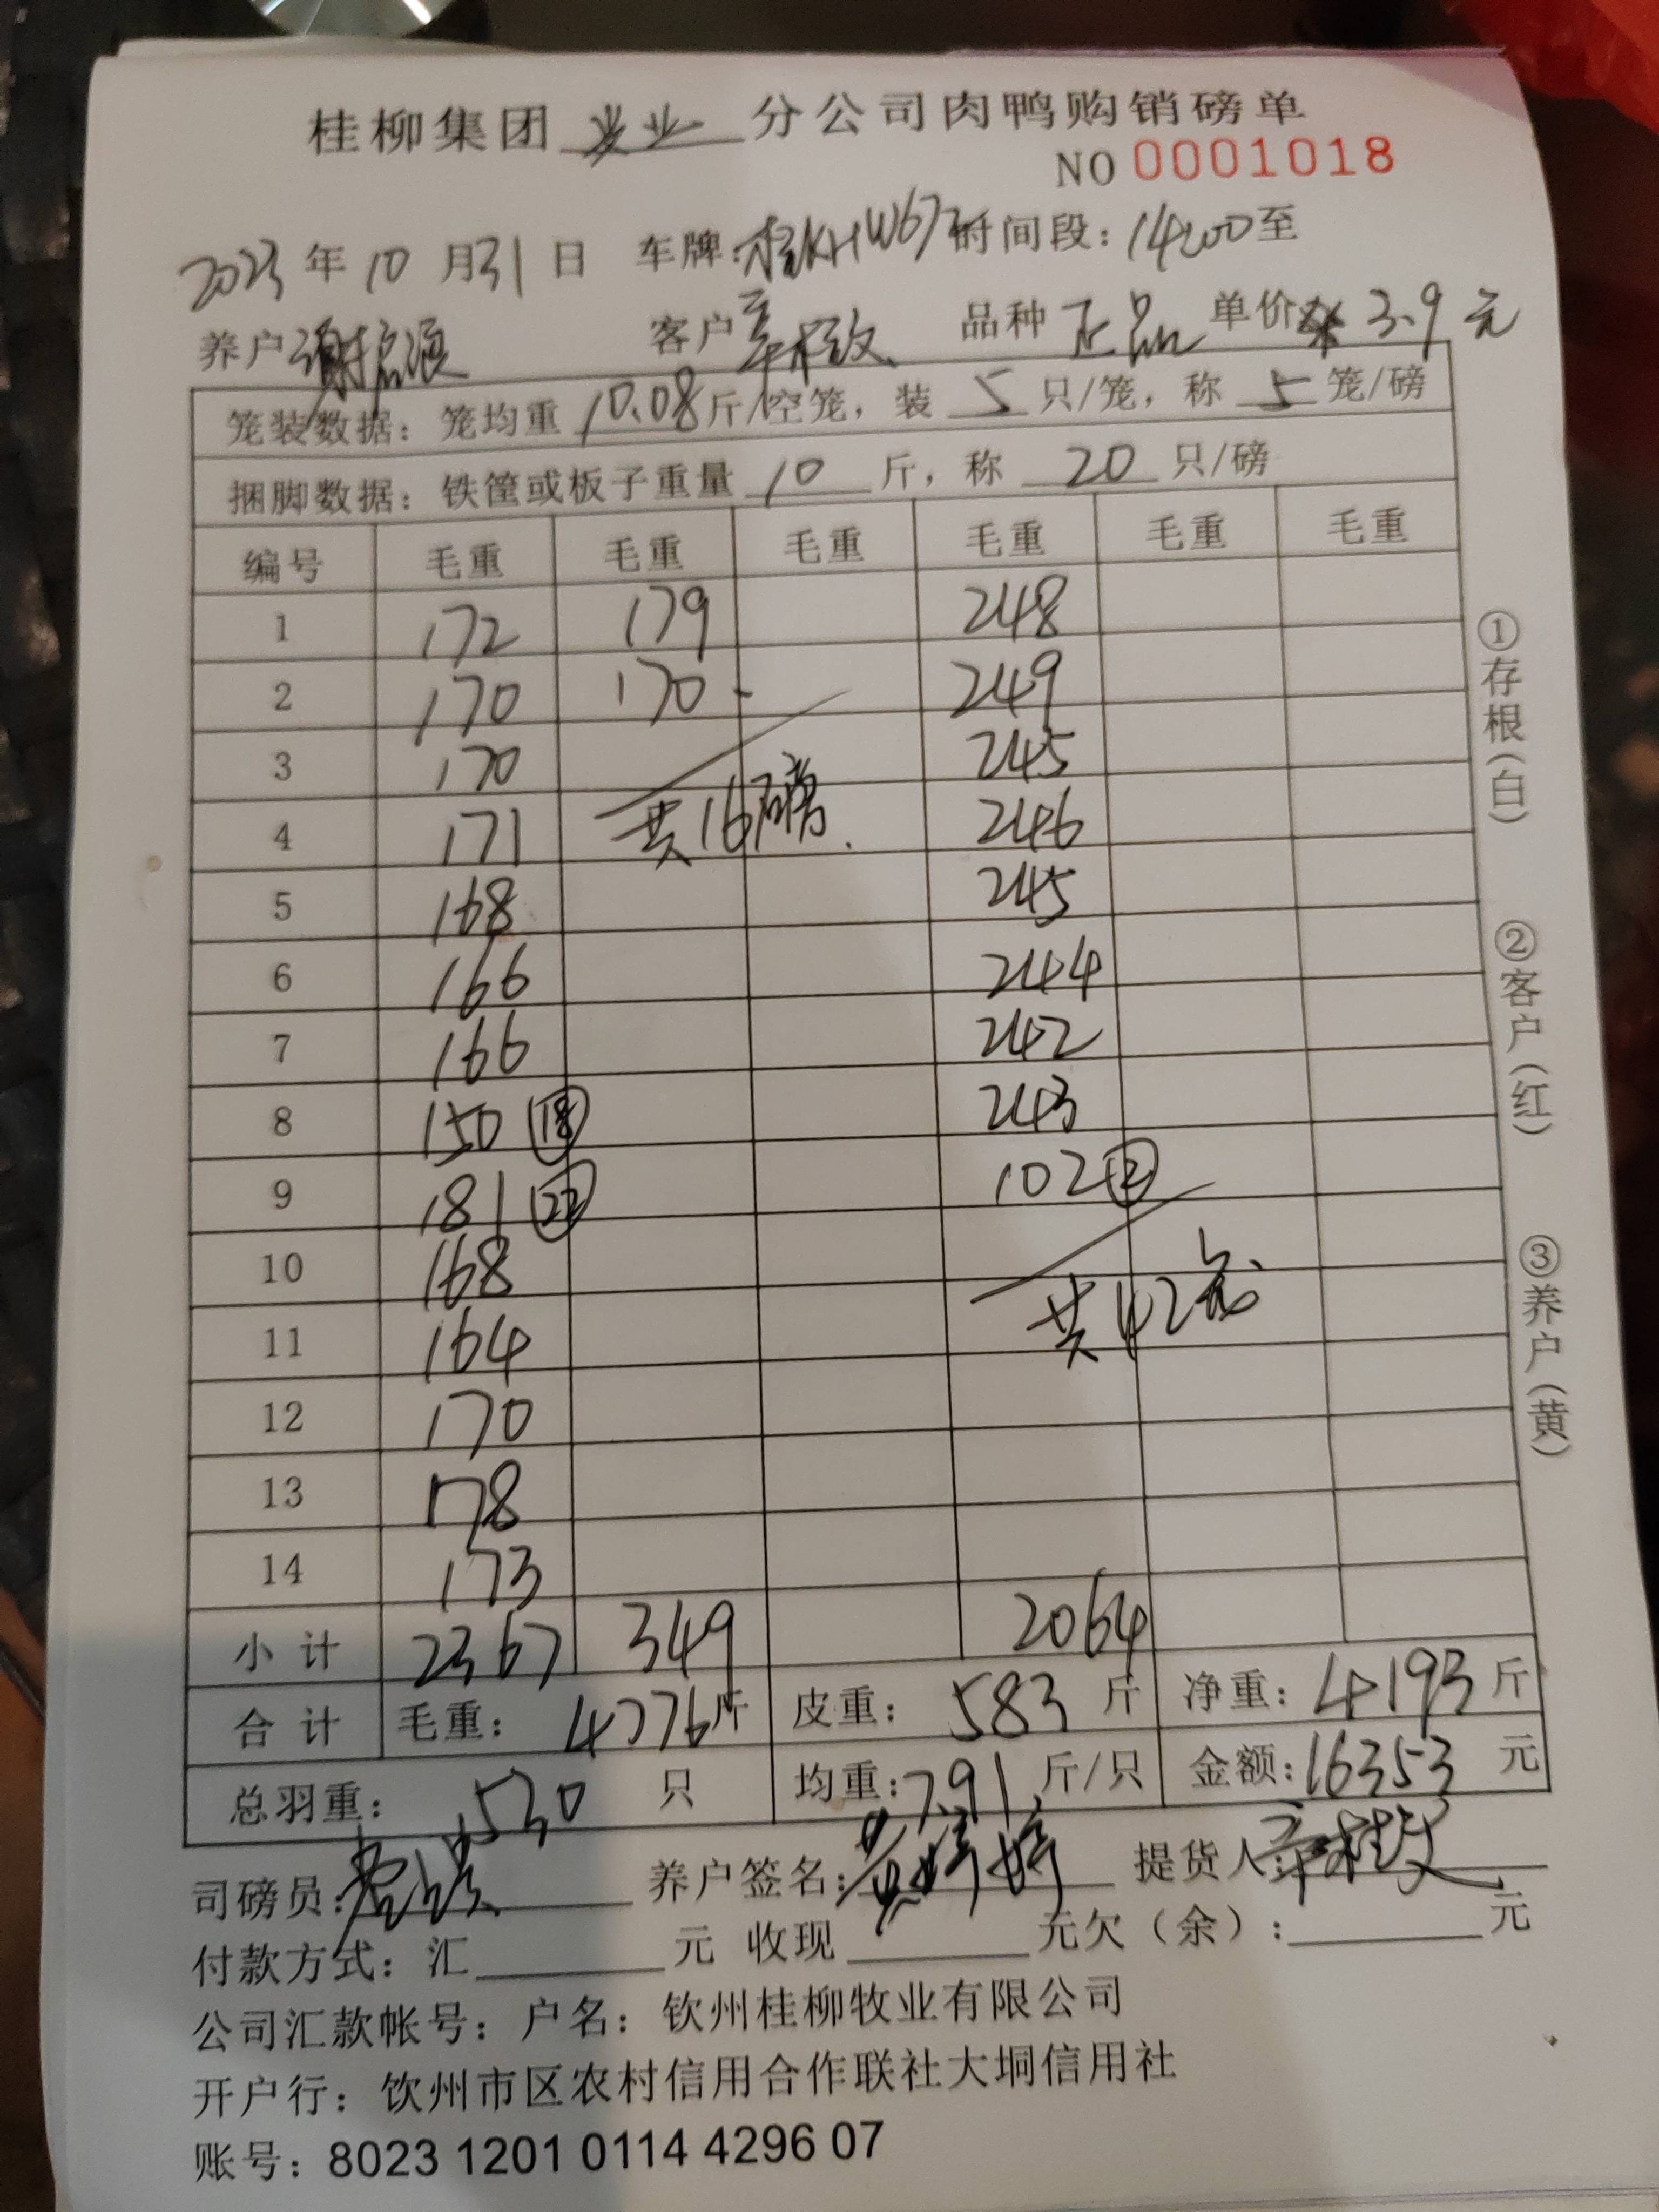 桂柳集团 牧业 分公司肉鸭购销磅单
NO 0001018
2023 年 10 月 31 日 车牌:桂KHW673 时间段:14:00至
养户 谢 客户 品种 正品 单价 3.9 元
笼装数据:笼均重 10.08 斤/空笼,装 5 只/笼,称 5 笼/磅
捆脚数据:铁筐或板子重量 10 斤,称 20 只/磅
编号 毛重 毛重 毛重 毛重 毛重 毛重
1 172 179 248
2 170 170 249
3 170 245
4 171 共16磅. 246
5 168 245
6 166 244
7 166 242
8 150 ⑱ 243
9 181 ㉒ 102 ②
10 168
11 164 共42笼
12 170
13 178
14 173
小计 2367 349 2064
合计 毛重: 4776斤 皮重: 583 斤 净重: 4193 斤
总羽重: 530 只 均重: 7.91 斤/只 金额: 16353 元
司磅员: 养户签名: 黄婷婷 提货人:
付款方式:汇 元 收现 元欠(余): 元
公司汇款帐号:户名:钦州桂柳牧业有限公司
开户行:钦州市区农村信用合作联社大垌信用社
账号:8023 1201 0114 4296 07
①存根(白) ②客户(红) ③养户(黄)